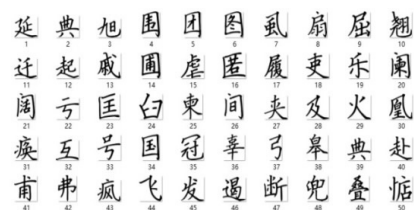 延 典 旭 围 团 图 虱 扇 屈 翘
1 2 3 4 5 6 7 8 9 10
迁 起 戚 圃 虐 匿 履 吏 乐 阑
11 12 13 14 15 16 17 18 19 20
阔 亏 匡 臼 柬 间 夹 及 火 凰
21 22 23 24 25 26 27 28 29 30
痪 互 号 国 冠 辜 弓 皋 典 赴
31 32 33 34 35 36 37 38 39 40
甫 弗 疯 飞 发 遏 断 兜 叠 惦
41 42 43 44 45 46 47 48 49 50